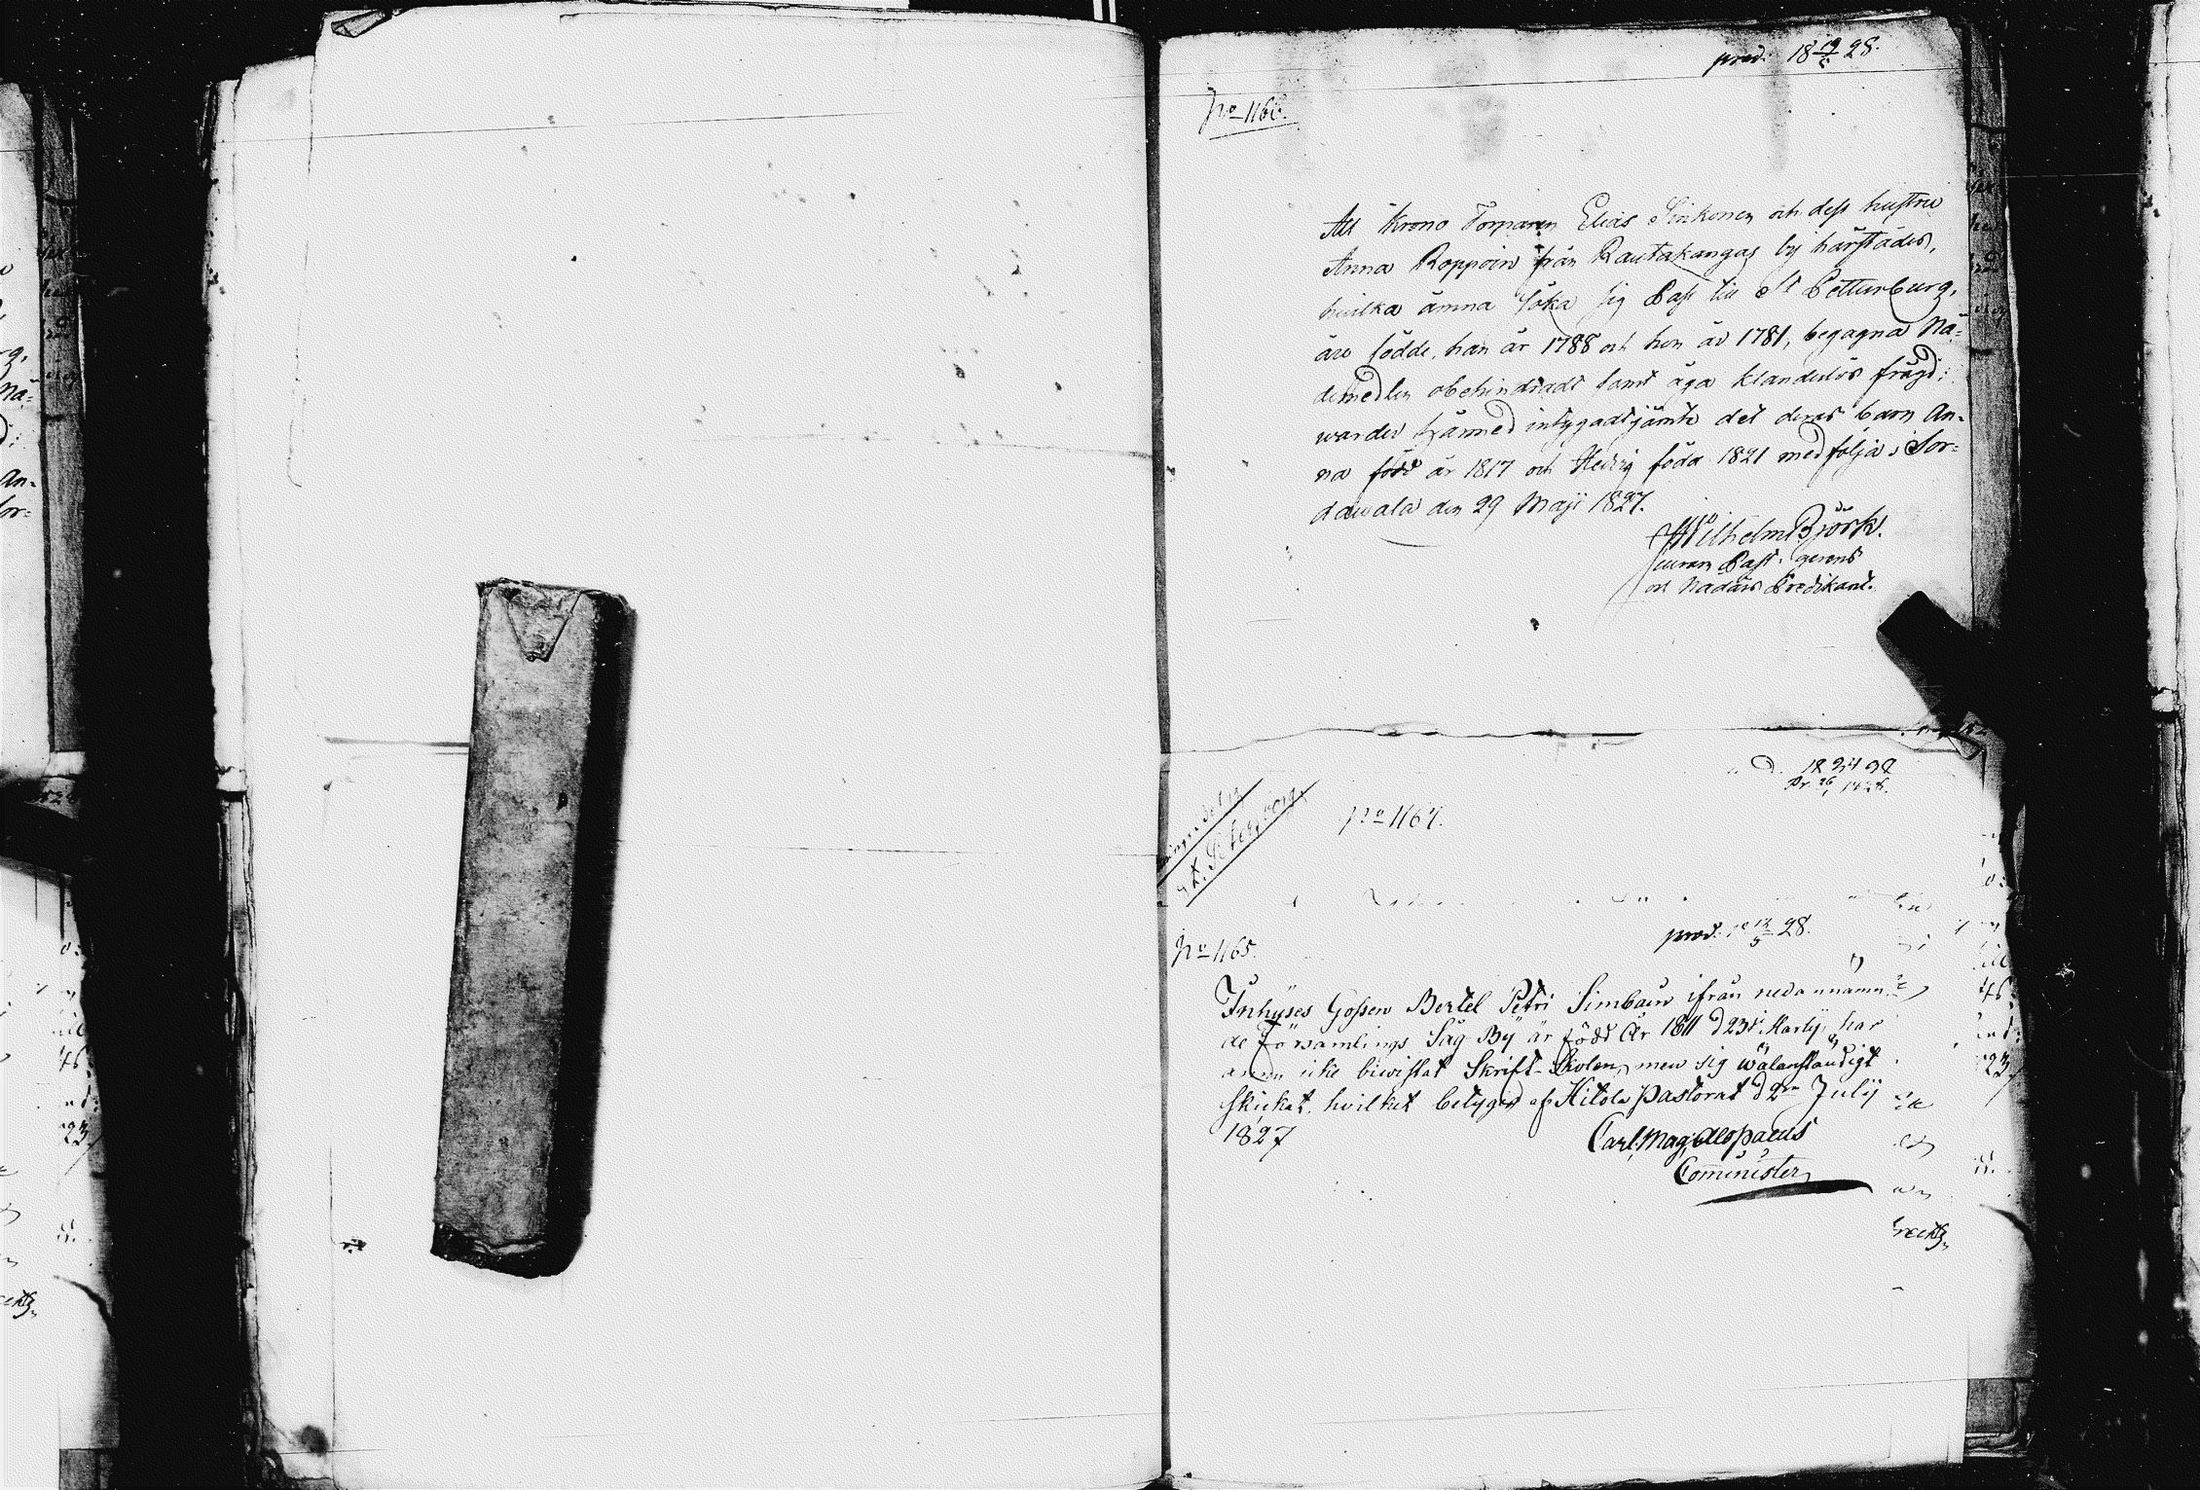 prod. 18 19/5 28.
No 1166.
Att Krono Torparen Elias Sinkonen och dess hustru
Anna Roppoin från Rautakangas by härstädes,
hvilka ämna söka sig Pass till St Petturburg,
äro födde, han år 1788 och hon år 1781, begagna Nå-
demedlen obehindradt samt äga klanderlös frägd;
warder härmed intygadt jämte det deras barn An-
na född år 1817 och Hedvig föda 1821 medfölja; Sor-
dawala den 29 Maji 1827.
Wilhelm Björk.
curam Past. gerens
och Nådårs Predikant.
No 1167.
St. Petersburg
prod. 18 12/5 28.
No 1165.
Inhyses Gossen Bertel Petri Simbain ifrån nedannämn-
de Församlings Såg By är född År 1811 d 23 Martij, har
ännu icke biwistat Skrift-Skolen, men sig wälanständigt
skickat, hvilket betygas af Hitola Pastorat d 2en Julij
1827
Carl Mag. Alopaeus
Comminister